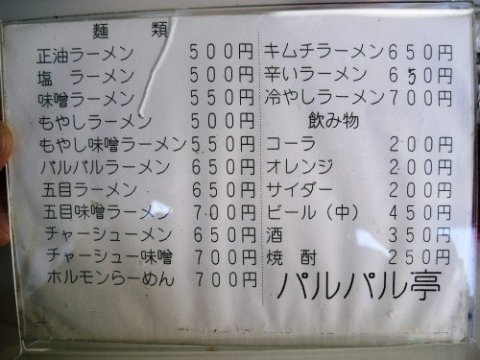 麺類
正油ラーメン 500円
塩 ラーメン 500円
味噌ラーメン 550円
もやしラーメン 500円
もやし味噌ラーメン 550円
パルパルラーメン 650円
五目ラーメン 650円
五目味噌ラーメン 700円
チャーシューメン 650円
チャーシュー味噌 700円
ホルモンらーめん 700円
キムチラーメン 650円
辛いラーメン 650円
冷やしラーメン 700円
飲み物
コーラ 200円
オレンジ 200円
サイダー 200円
ビール(中) 450円
酒 350円
焼酎 250円
パルパル亭